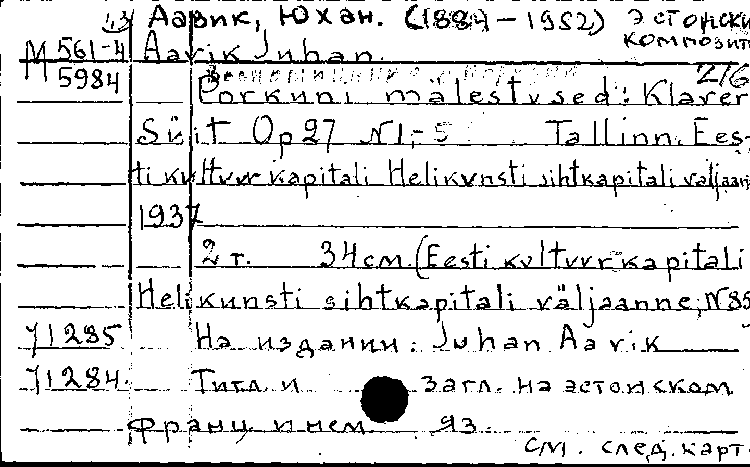 Аавик, Юхан. (1884-1952) эстонски
композит
М 561-4 Aavik Juhan.
М 5984 216
Porkuni mälestused: Klaver
Süit Op 27 N 1-5 Tallinn. Ees-
ti kultuurkapitali Helikunsti sihtkapitali väljaan
1937
2 т. 34 см. (Eesti kultuurkapitali
Helikunsti sihtkapitali väljaanne; N 85
71285 На издании: Juhan Aavik
71284. Титл. и загл. на эстонском
франц и нем яз.
см. след. карт